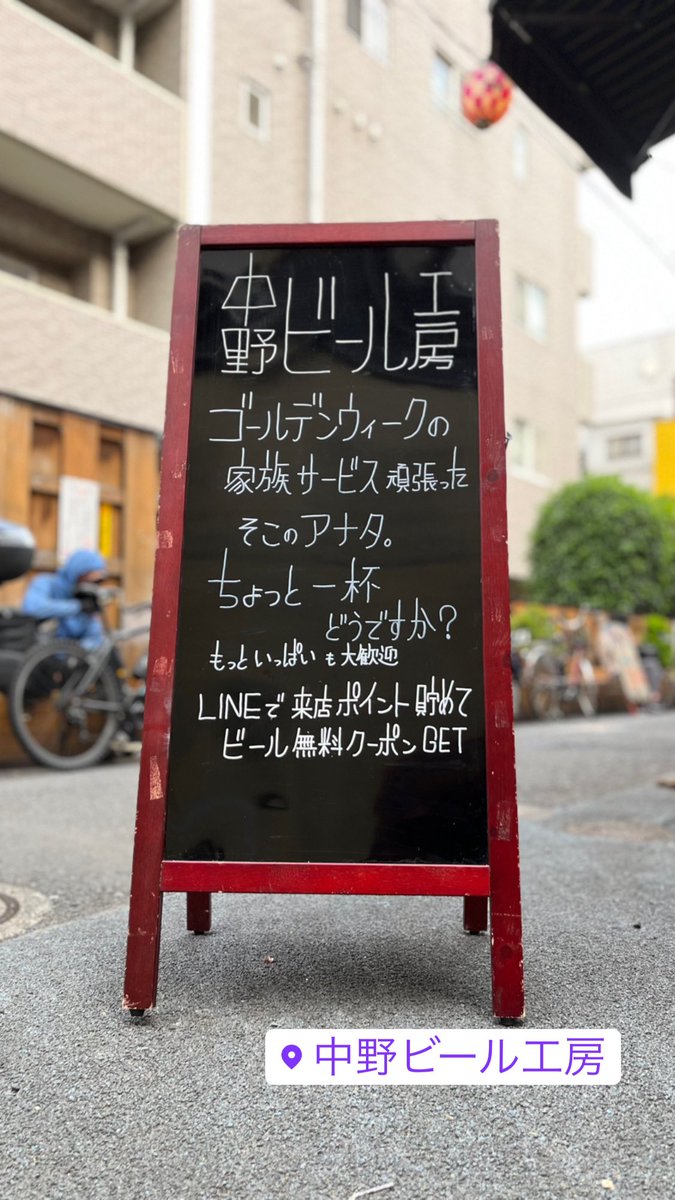 中野ビール工房
ゴールデンウィークの
家族サービス頑張った
そこのアナタ。
ちょっと一杯
どうですか?
もっといっぱいも大歓迎
LINEで来店ポイント貯めて
ビール無料クーポンGET
中野ビール工房